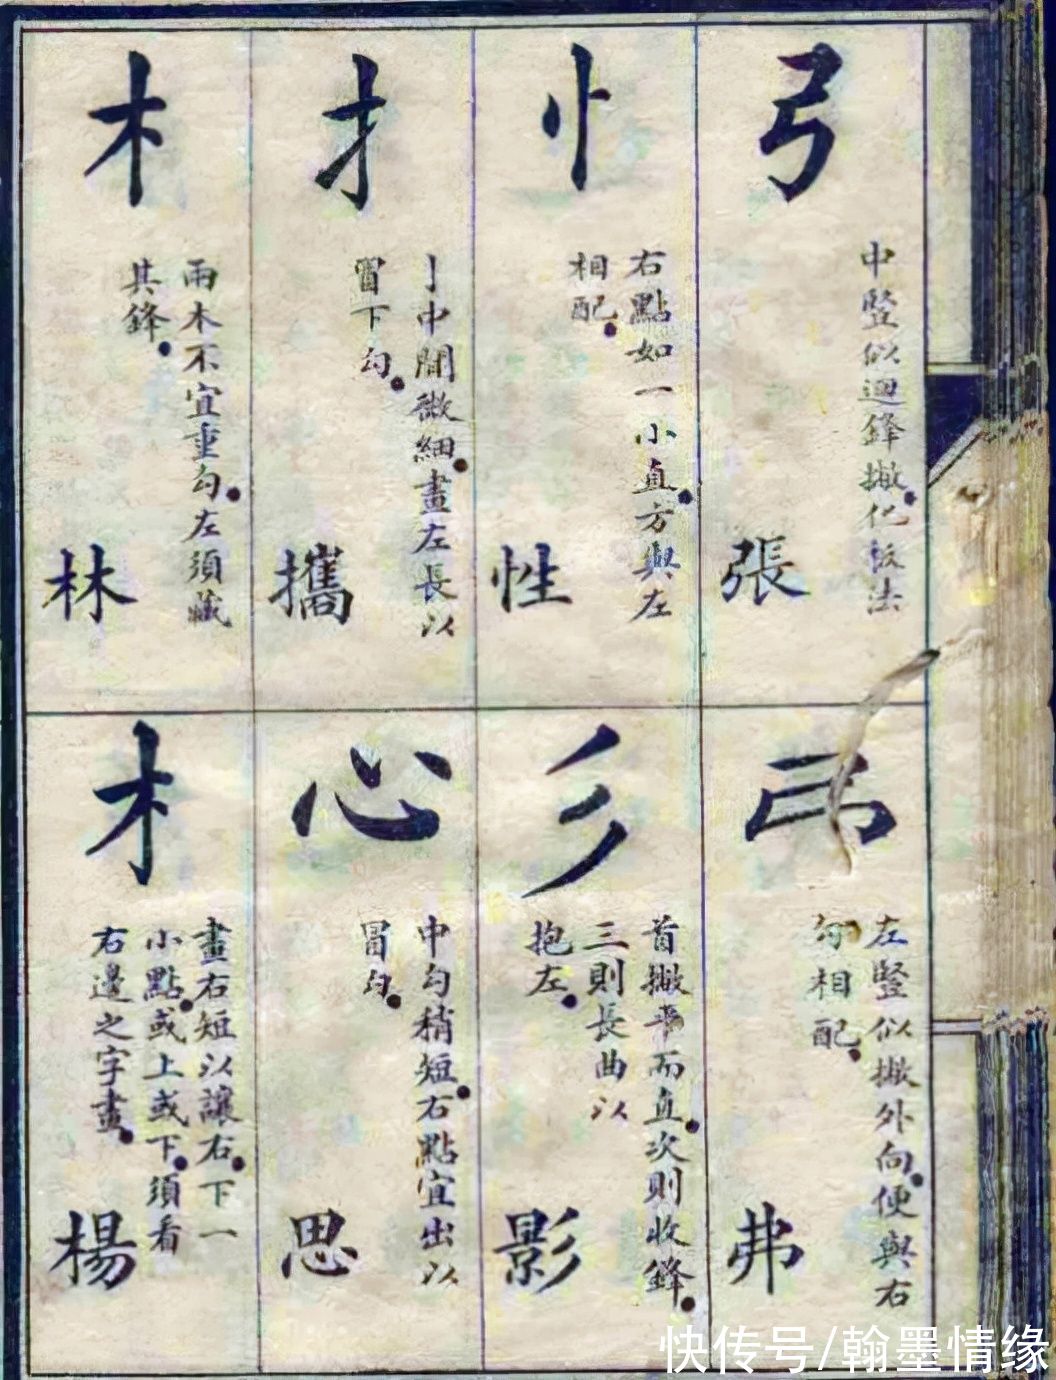 弓
中豎似迴鋒撇化板法
張
忄
右點如一小直方與左
相配
性
扌
亅中間微細畫左長以
冒下勾
攜
木
兩木不宜重勾左須藏
其鋒
林
左豎似撇外向便與右
勾相配
弗
彡
首撇平而直次則收鋒
三則長曲以
抱左
影
心
中勾稍短右點宜出以
冒勾
思
木
畫右短以讓右下一
小點或上或下須看
右邊之字畫
楊
快传号/翰墨情缘